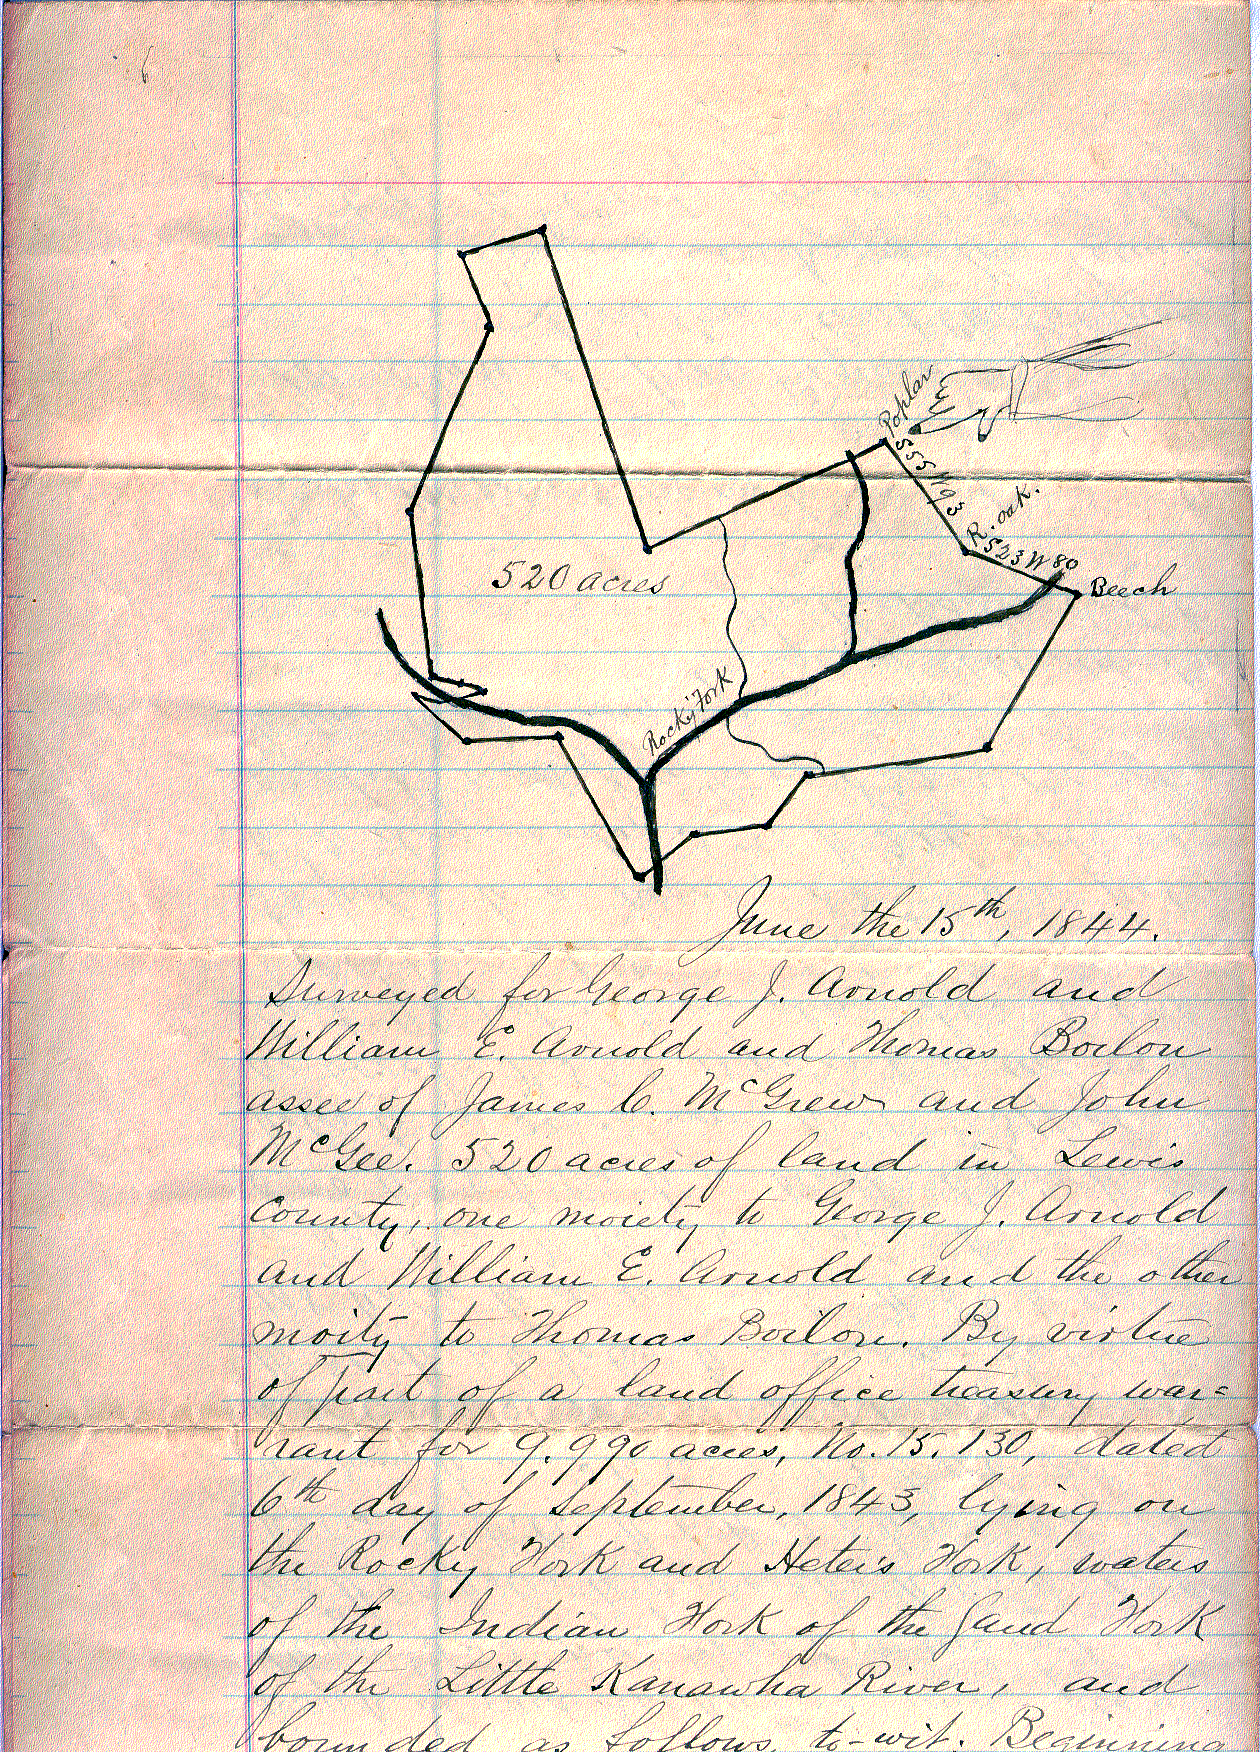 Poplar
S55 W93
R. oak.
S23 W 80
Beech
520 acres
Rocky Fork
June the 15th, 1844.
Surveyed for George J. Arnold and
William E. Arnold and Thomas Boilon
assee of James C. McGrew and John
McGee. 520 acres of land in Lewis
County, one moiety to George J. Arnold
and William E. Arnold and the other
moity to Thomas Boilon. By virtue
of part of a land office treasury war=
rant for 9.990 acres, No. 15.130, dated
6th day of September, 1843, lying on
the Rocky Fork and Heter's Fork, waters
of the Indian Fork of the Sand Fork
of the Little Kanawha River, and
bounded as follows, to-wit. Beginning